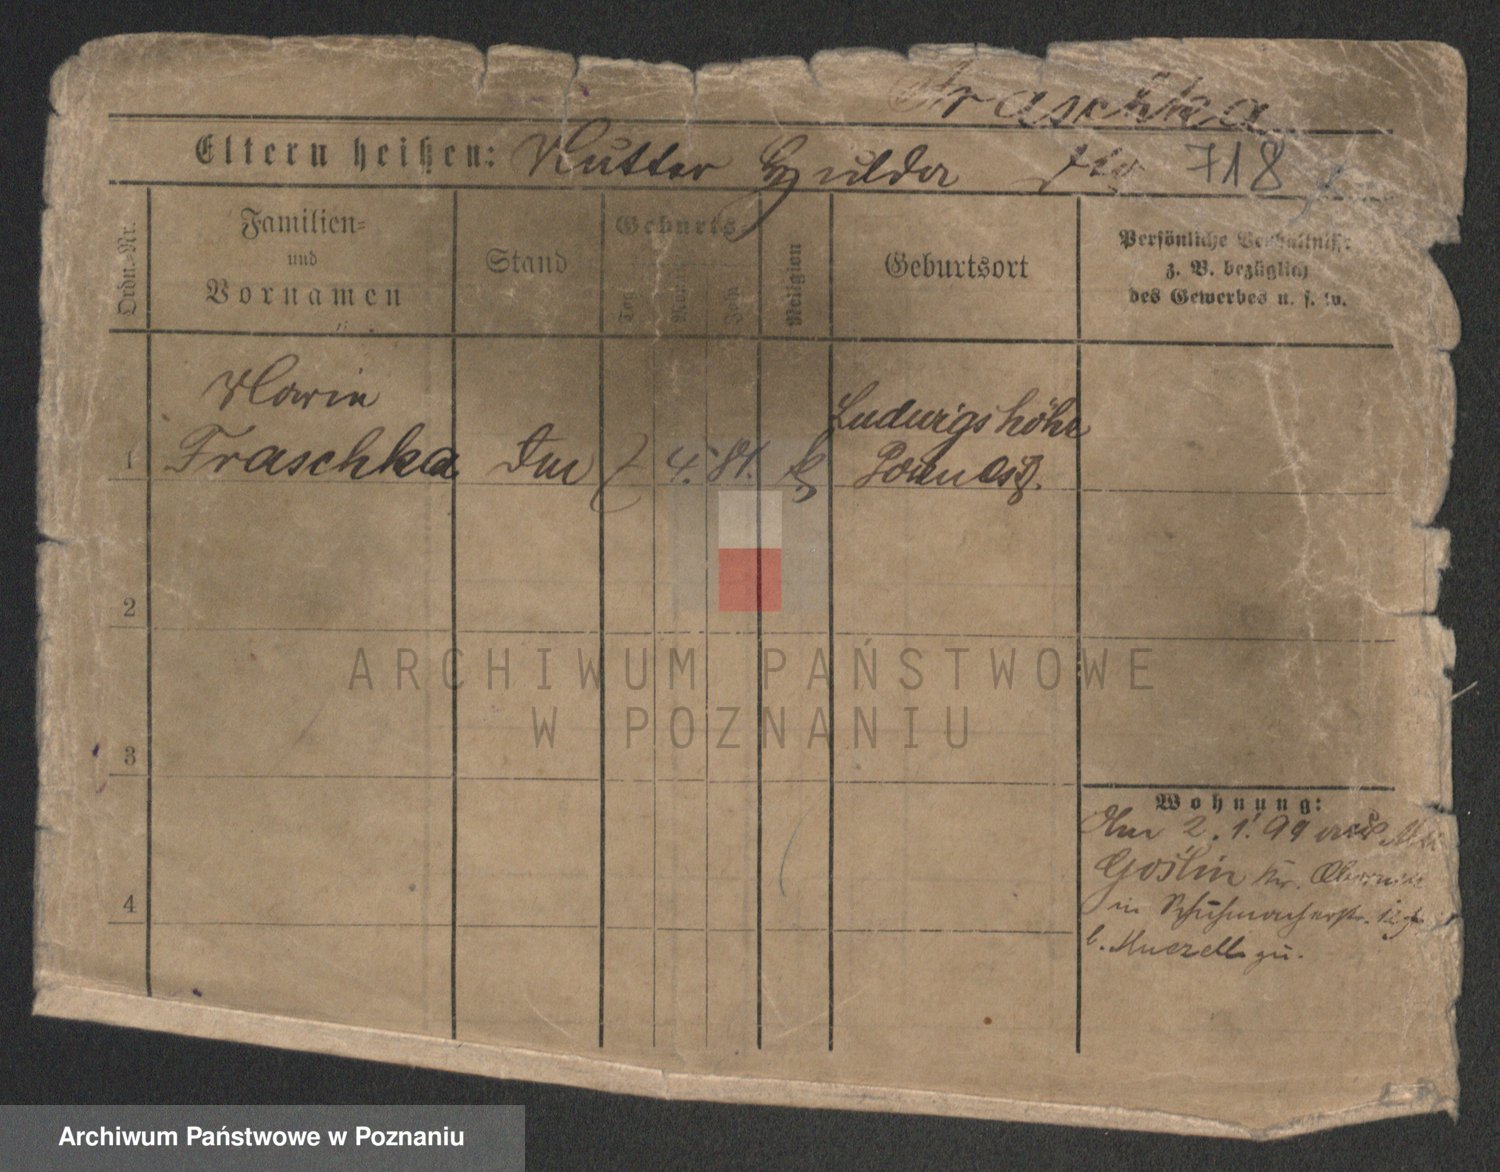 Fraschka
Eltern heißen: Mutter Hulda 718
Ordn.-Nr.
Familien-
und
Vornamen
Stand
Geburts-
Tag
Monat
Jahr
Religion
Geburtsort
Persönliche Verhältnisse
z. B. bezüglich
des Gewerbes u. s. w.
Marie
1 Fraschka 4. 81.
Ludwigshöhe
2
3
4
Wohnung:
Am 2.1.99 aus
Goślin Kr. Obornik
in Schuhmacherstr. 12
b. Muczell zu.
ARCHIWUM PAŃSTWOWE
W POZNANIU
Archiwum Państwowe w Poznaniu